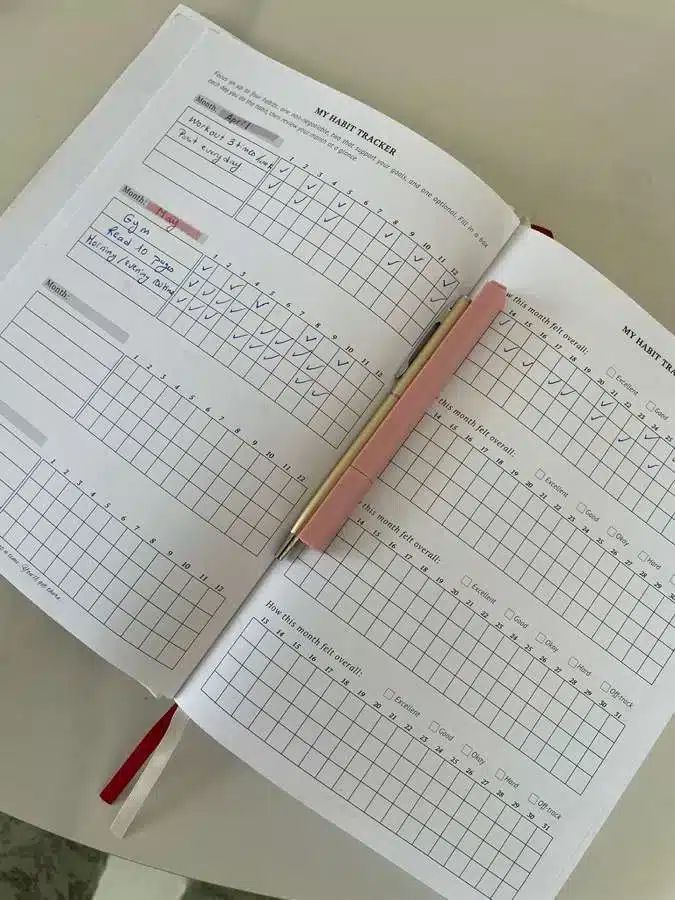 MY HABIT TRACKER
Focus on up to four habits: one non-negotiable, two that support your goals, and one optional. Fill in a box
each day you do the habit, then review your month at a glance.
Month: April
1 2 3 4 5 6 7 8 9 10 11 12
Workout 3 times/week
Paint everyday
Month: May
1 2 3 4 5 6 7 8 9 10 11 12
Gym
Read 10 pages
Morning/evening routine
Month:
1 2 3 4 5 6 7 8 9 10 11 12
1 2 3 4 5 6 7 8 9 10 11 12
at a time. You'll get there.
MY HABIT TRA
this month felt overall:
Excellent
Good
14 15 16 17 18 19 20 21 22 23 24 25
this month felt overall:
Excellent
Good
Okay
Hard
14 15 16 17 18 19 20 21 22 23 24 25 26 27 28 29 30
this month felt overall:
Excellent
Good
Okay
Hard
Off-track
14 15 16 17 18 19 20 21 22 23 24 25 26 27 28 29 30 31
How this month felt overall:
Excellent
Good
Okay
Hard
Off-track
13 14 15 16 17 18 19 20 21 22 23 24 25 26 27 28 29 30 31